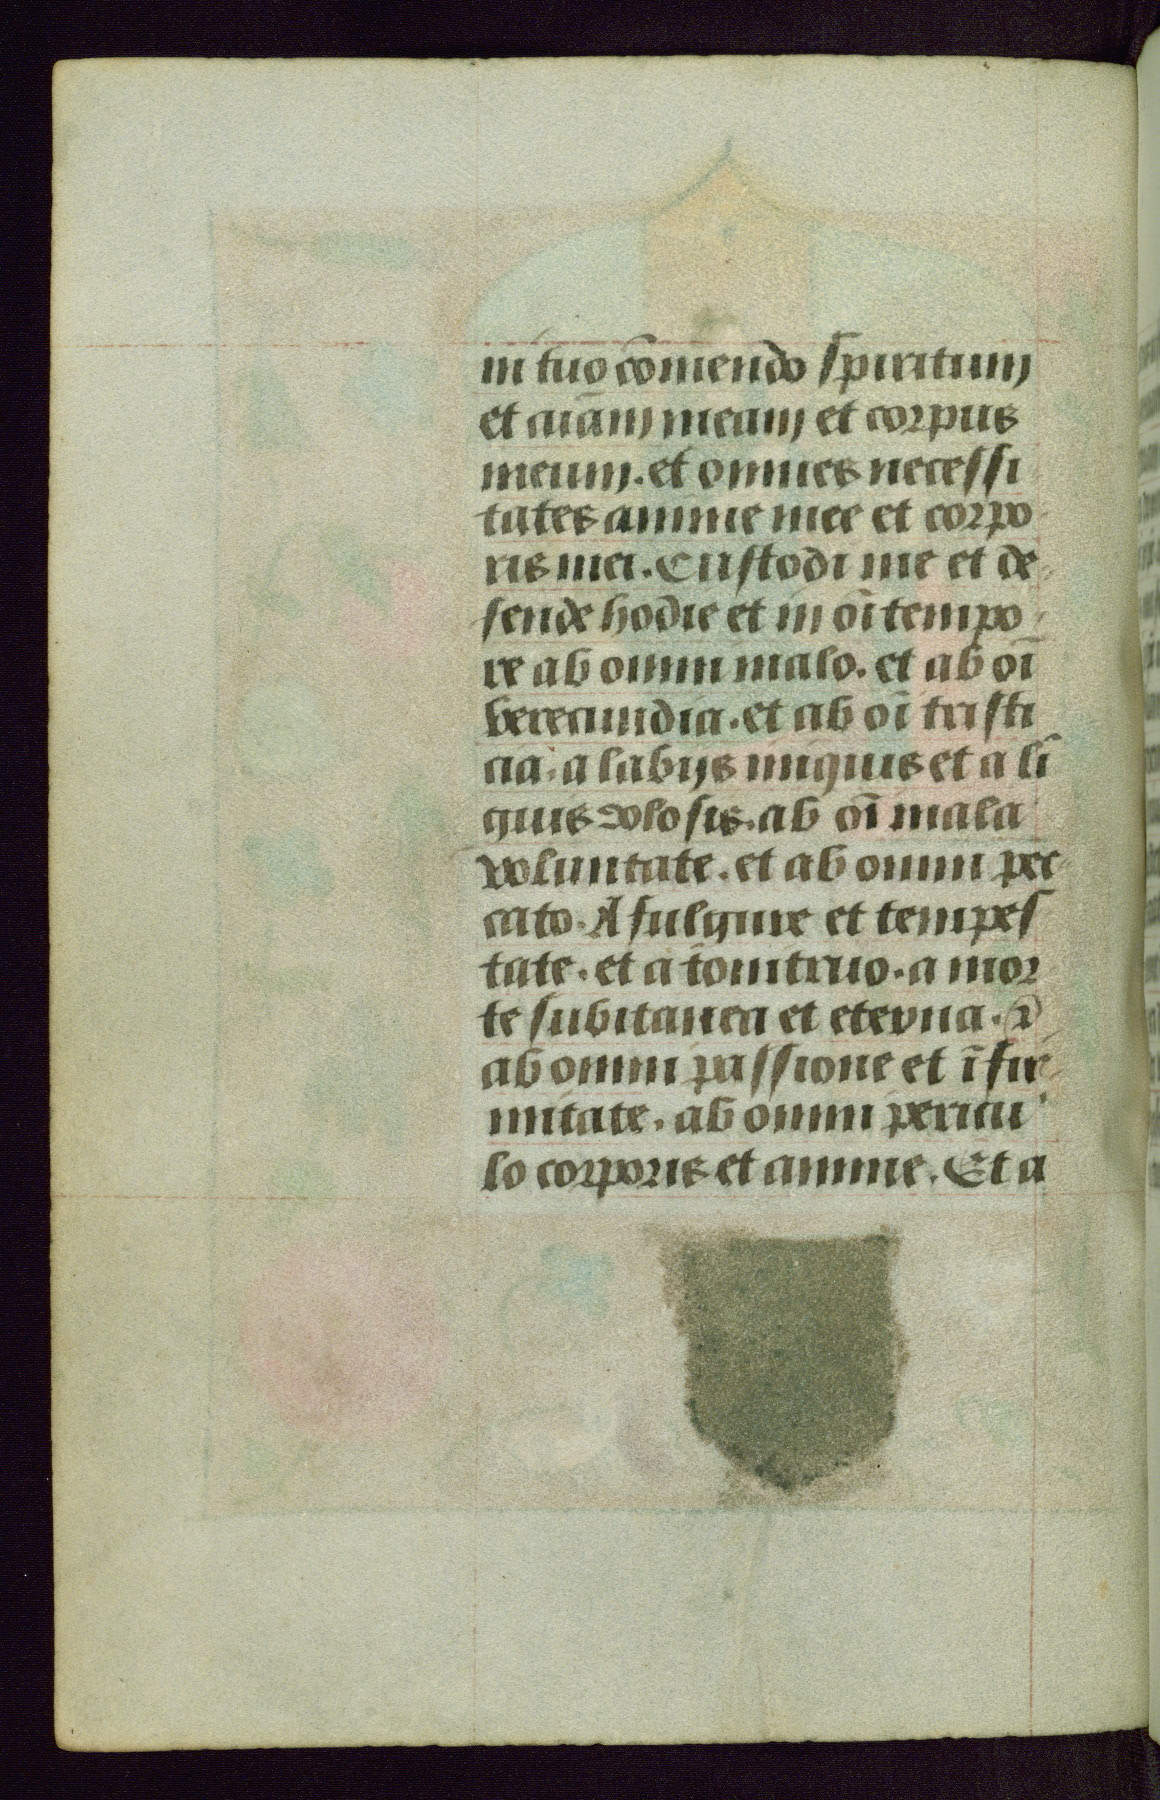 in tuo cōmendo spiritum
et aīam meam et corpus
meum. et omnies necessi
tates anime mee et corpo
ris mei. Custodi me et de
fende hodie et in oī tempo
re ab omni malo. et ab oī
verecundia. et ab oī tristi
cia. a labijs iniquis et a lī
guis dolosis. ab oī mala
voluntate. et ab omni pec
cato. A fulgure et tempes
tate. et a tonitruo. a mor
te subitanea et eterna. ꝛ
ab omni passione et īfir
mitate. ab omni pericu
lo corporis et anime. Et a